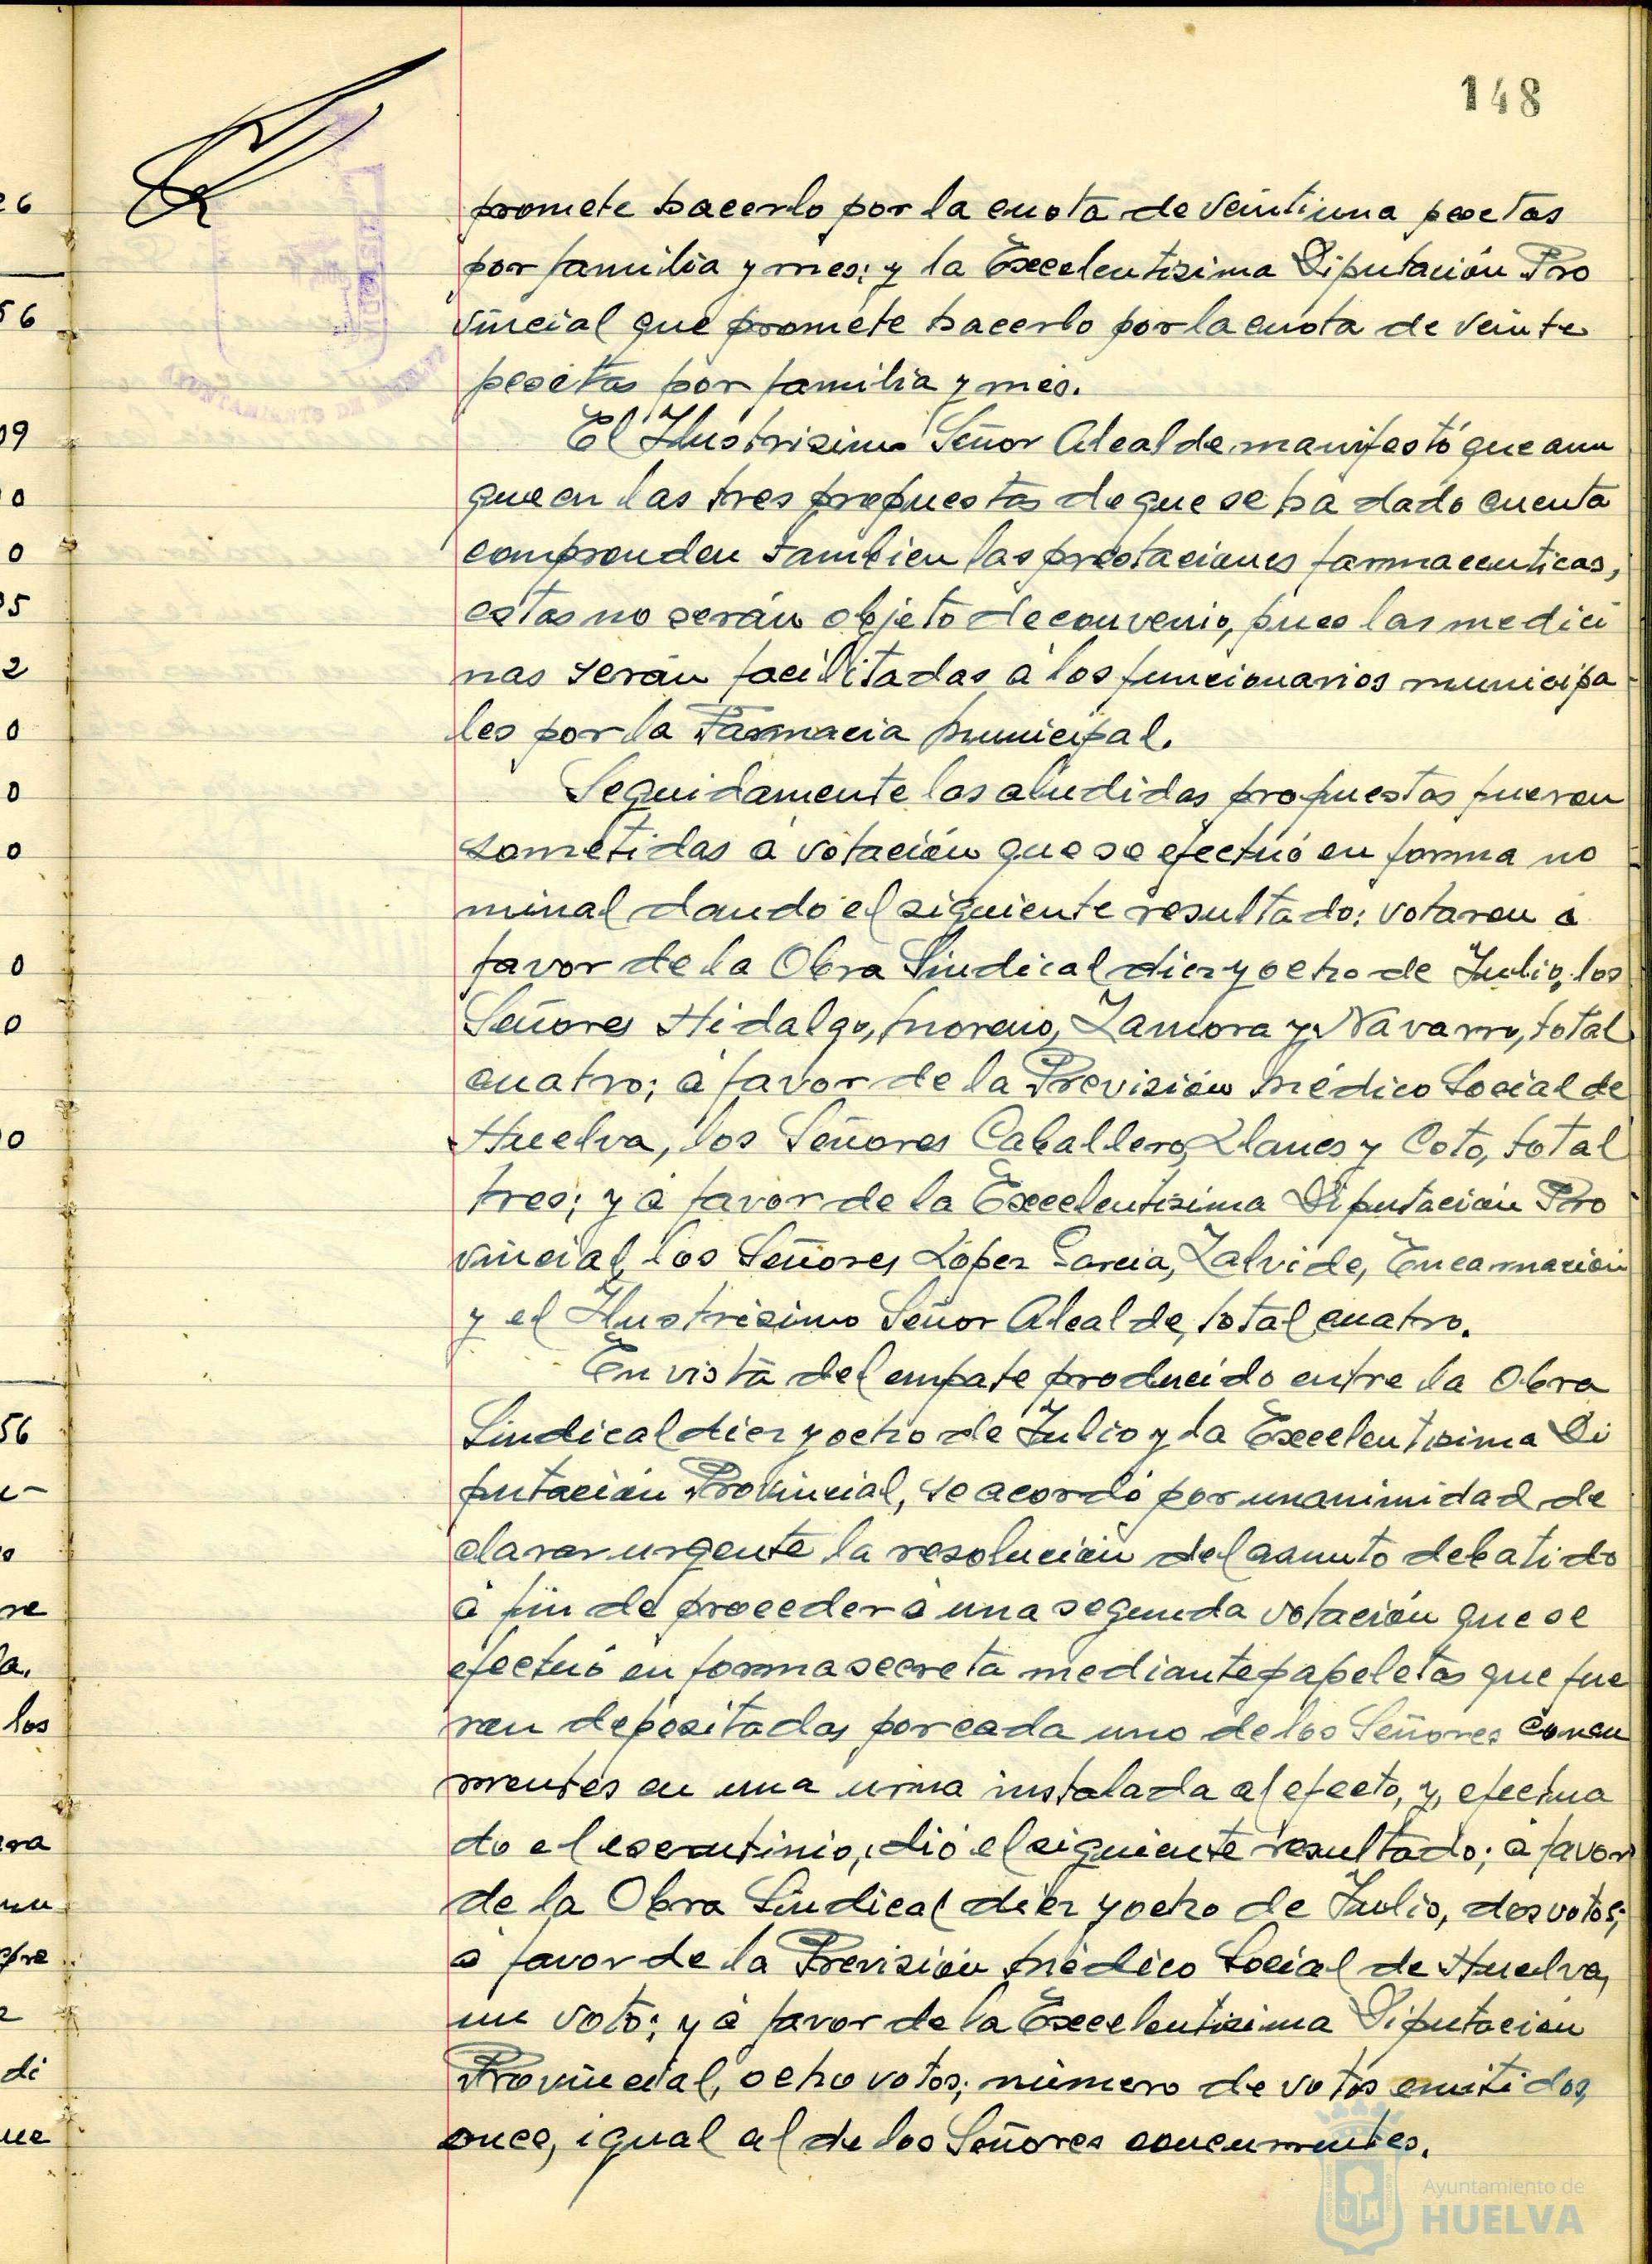 148
promete hacerlo por la cuota de veintiuna pesetas
por familia y mes; y la Excelentísima Diputación Pro
vincial que promete hacerlo por la cuota de veinte
pesetas por familia y mes.
El Ilustrísimo Señor Alcalde manifestó que aun
que en las tres propuestas de que se ha dado cuenta
comprenden tambien las prestaciones farmaceuticas,
estas no serán objeto de convenio, pues las medici
nas serán facilitadas a los funcionarios municipa
les por la Farmacia Municipal.
Seguidamente las aludidas propuestas fueron
sometidas a votación que se efectuó en forma no
minal dando el siguiente resultado: votaron a
favor de la Obra Sindical diez y ocho de Julio, los
Señores Hidalgo, Moreno, Zamora y Navarro, total
cuatro; a favor de la Previsión Médico Social de
Huelva, los Señores Caballero, Llanes y Coto, total
tres; y a favor de la Excelentísima Diputación Pro
vincial, los Señores López García, Zalvide, Encarnación
y el Ilustrísimo Señor Alcalde, total cuatro.
En vista del empate producido entre la Obra
Sindical diez y ocho de Julio y la Excelentísima Di
putación Provincial, se acordó por unanimidad de
clarar urgente la resolución del asunto debatido
a fin de proceder a una segunda votación que se
efectuó en forma secreta mediante papeletas que fue
ron depositadas por cada uno de los Señores concu
rrentes en una urna instalada al efecto, y, efectua
do el escrutinio, dió el siguiente resultado; a favor
de la Obra Sindical diez y ocho de Julio, dos votos;
a favor de la Previsión Médico Social de Huelva,
un voto; y a favor de la Excelentísima Diputación
Provincial, ocho votos; número de votos emitidos,
once, igual al de los Señores concurrentes.
AYUNTAMIENTO DE HUELVA
26
56
09
0
0
05
2
0
0
0
0
0
0
56
re
a.
los
ra
pre
di
ue
Ayuntamiento de
HUELVA